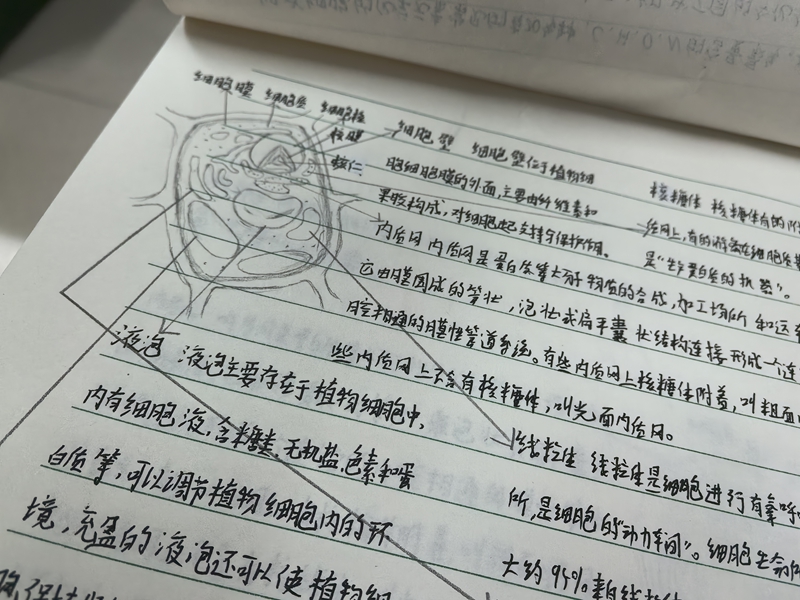 细胞膜 细胞质 细胞核
核膜
核仁
细胞壁 细胞壁位于植物细
胞细胞膜的外面,主要由纤维素和
果胶构成,对细胞起支持与保护作用。
核糖体 核糖体有的附
给网上,有的游离在细胞质
是“生产蛋白质的机器”。
内质网 内质网是蛋白质等大分子物质的合成,加工场所和运
它由膜围成的管状,泡状或扁平囊状结构连接形成一个连
腔相通的膜性管道系统。有些内质网上核糖体附着,叫粗面
些内质网上不含有核糖体,叫光面内质网。
液泡 液泡主要存在于植物细胞中,
内有细胞液,含糖类,无机盐,色素和蛋
白质等,可以调节植物细胞内的环
境,充盈的液泡还可以使植物细
胞保持
线粒体 线粒体是细胞进行有氧呼
所,是细胞的“动力车间”。细胞生命
大约95%来自线粒体